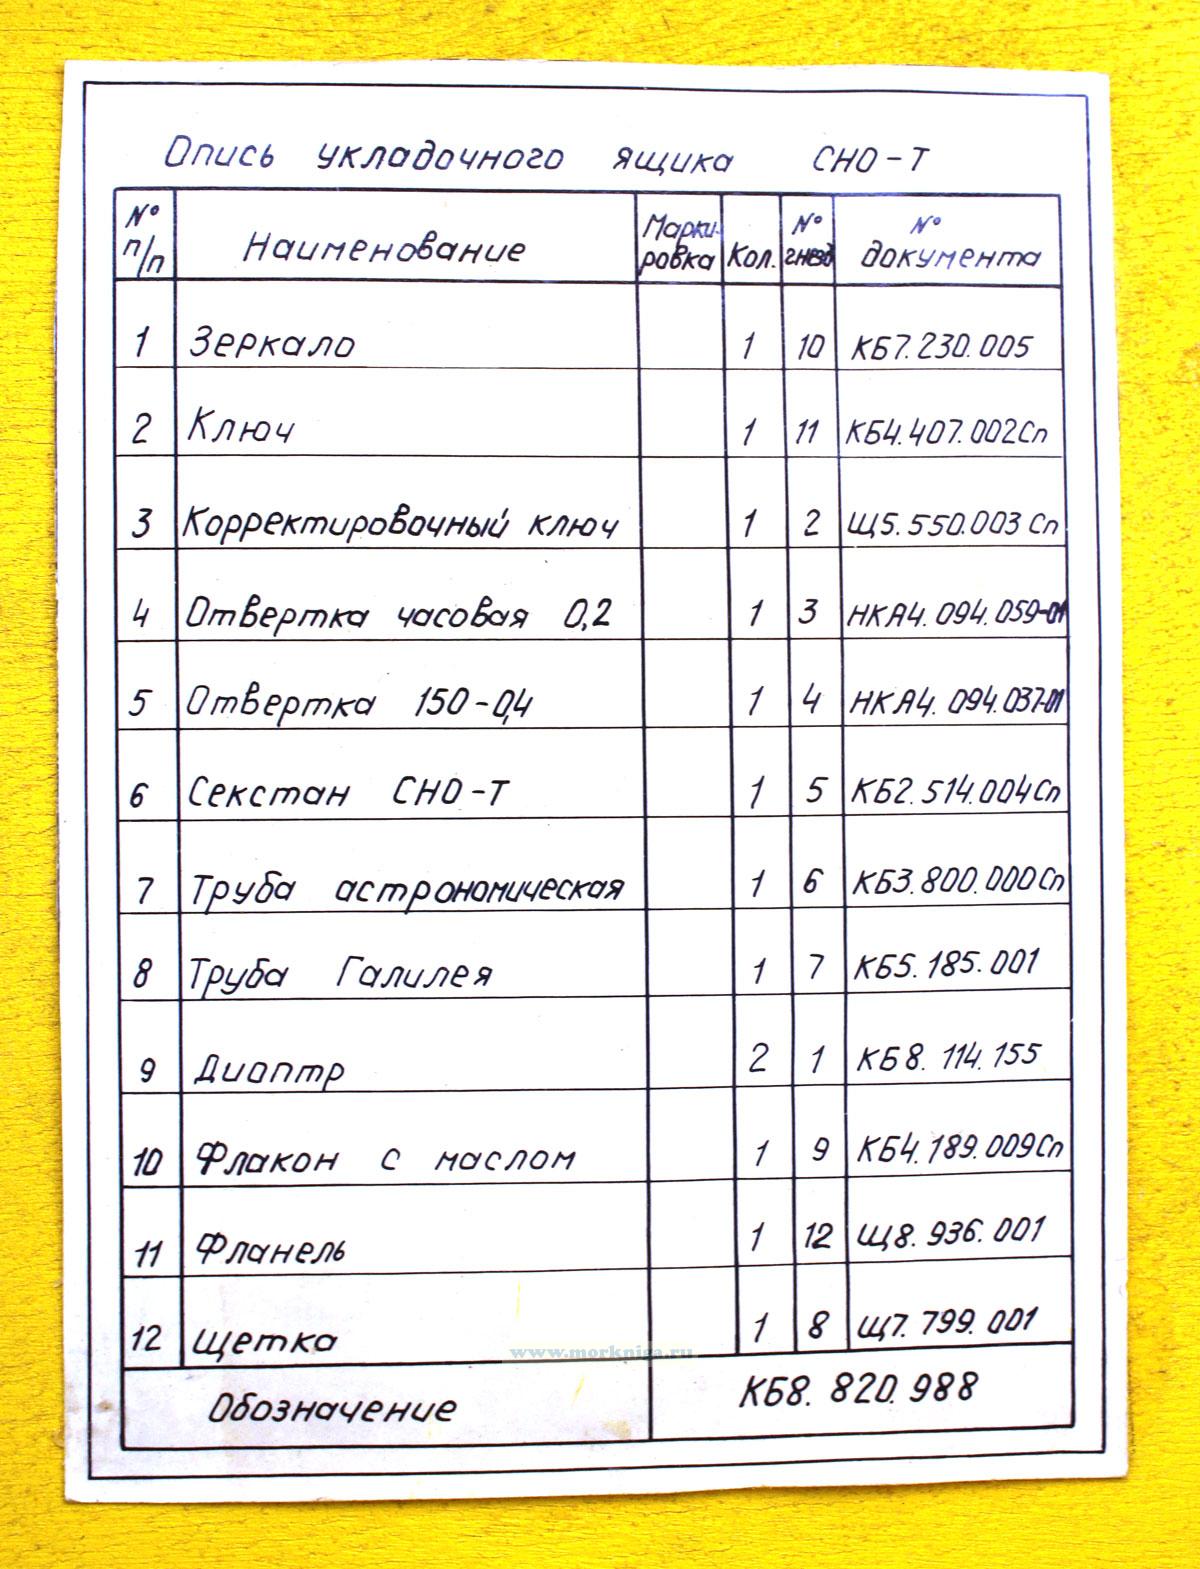 Опись укладочного ящика СНО-Т
№ п/п Наименование Маркировка Кол. № гнезд № документа
1 Зеркало 1 10 КБ7.230.005
2 Ключ 1 11 КБ4.407.002Сп
3 Корректировочный ключ 1 2 Щ5.550.003 Сп
4 Отвертка часовая 0,2 1 3 НКА4.094.059-01
5 Отвертка 150-0,4 1 4 НКА4.094.037-01
6 Секстан СНО-Т 1 5 КБ2.514.004Сп
7 Труба астрономическая 1 6 КБ3.800.000Сп
8 Труба Галилея 1 7 КБ5.185.001
9 Диоптр 2 1 КБ8.114.155
10 Флакон с маслом 1 9 КБ4.189.009Сп
11 Фланель 1 12 Щ8.936.001
12 Щетка 1 8 Щ7.799.001
www.morkniga.ru
Обозначение КБ8.820.988